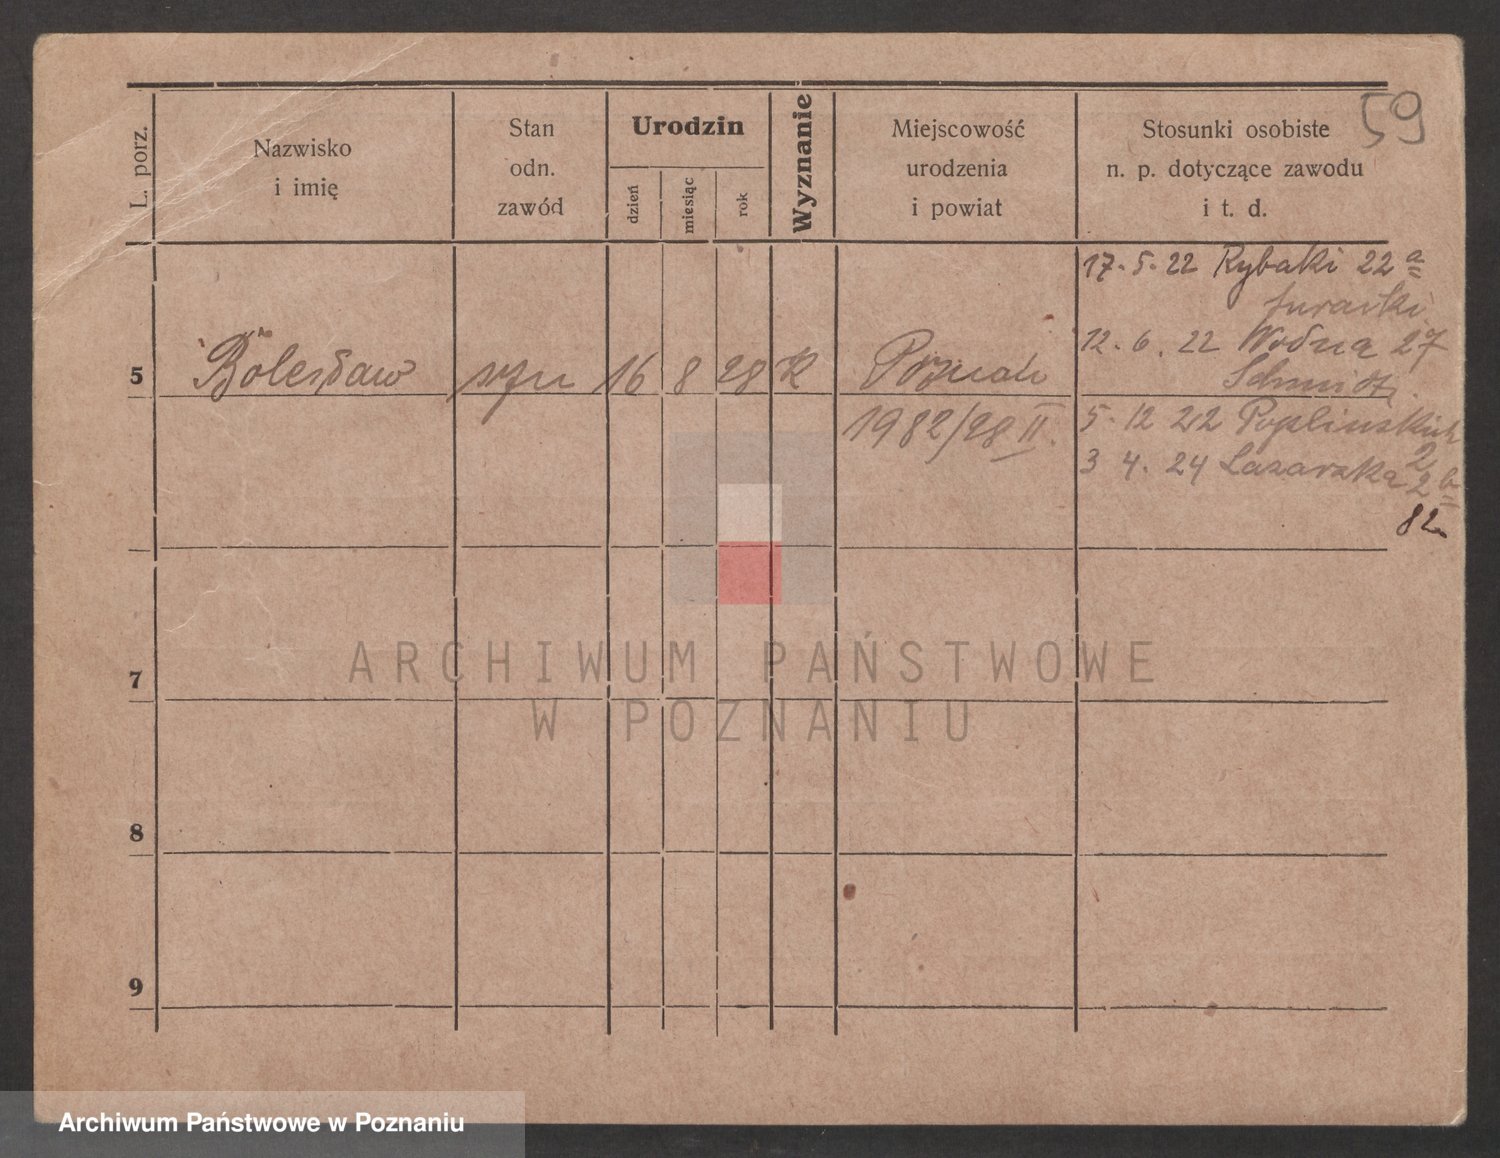 59
L. porz.
Nazwisko
i imię
Stan
odn.
zawód
Urodzin
dzień
miesiąc
rok
Wyznanie
Miejscowość
urodzenia
i powiat
Stosunki osobiste
n. p. dotyczące zawodu
i t. d.
17. 5. 22 Rybaki 22 a
12. 6. 22 Wodna 27
Schmidt.
5 Bolesław syn 16 8 28 K Poznań
1982/28 II.
5. 12 22 Poplińskich
2
3 4. 24 Łazarska 2 b
82
7
8
9
ARCHIWUM PAŃSTWOWE
W POZNANIU
Archiwum Państwowe w Poznaniu